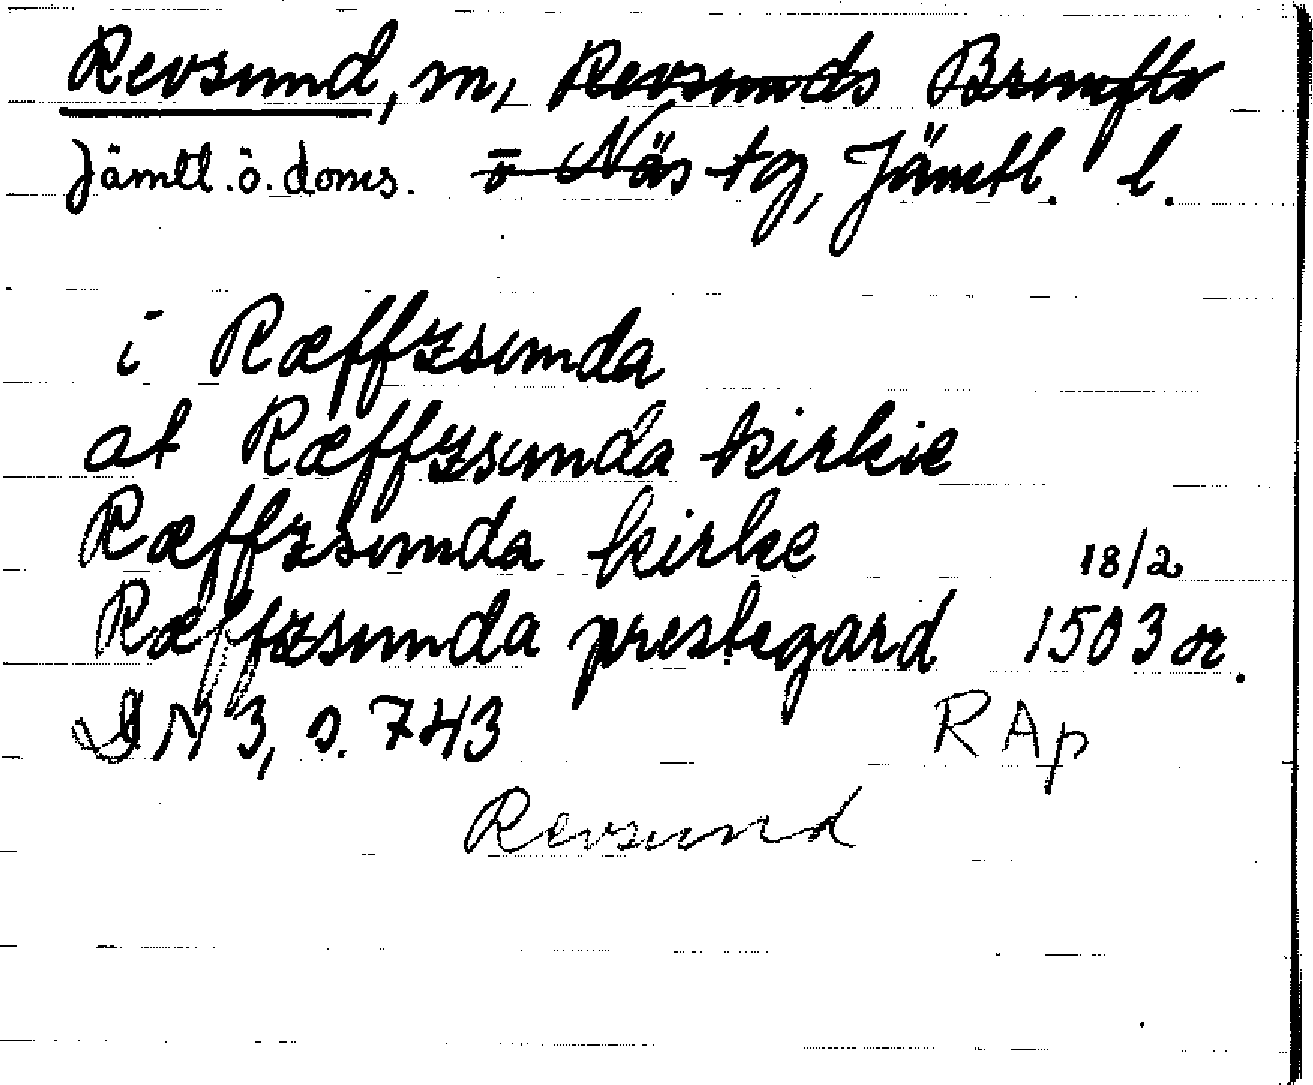 Revsund, m, Revsunds Brunflo
Jämtl. ö. doms. o Näs tg, Jämtl. l.
i Ræffzsunda
at Ræffzsunda kirkie
Ræffzsunda kirke 18/2
Ræffzsunda prestegard 1503 or.
DN 3, s. 743 RAp
Revsund